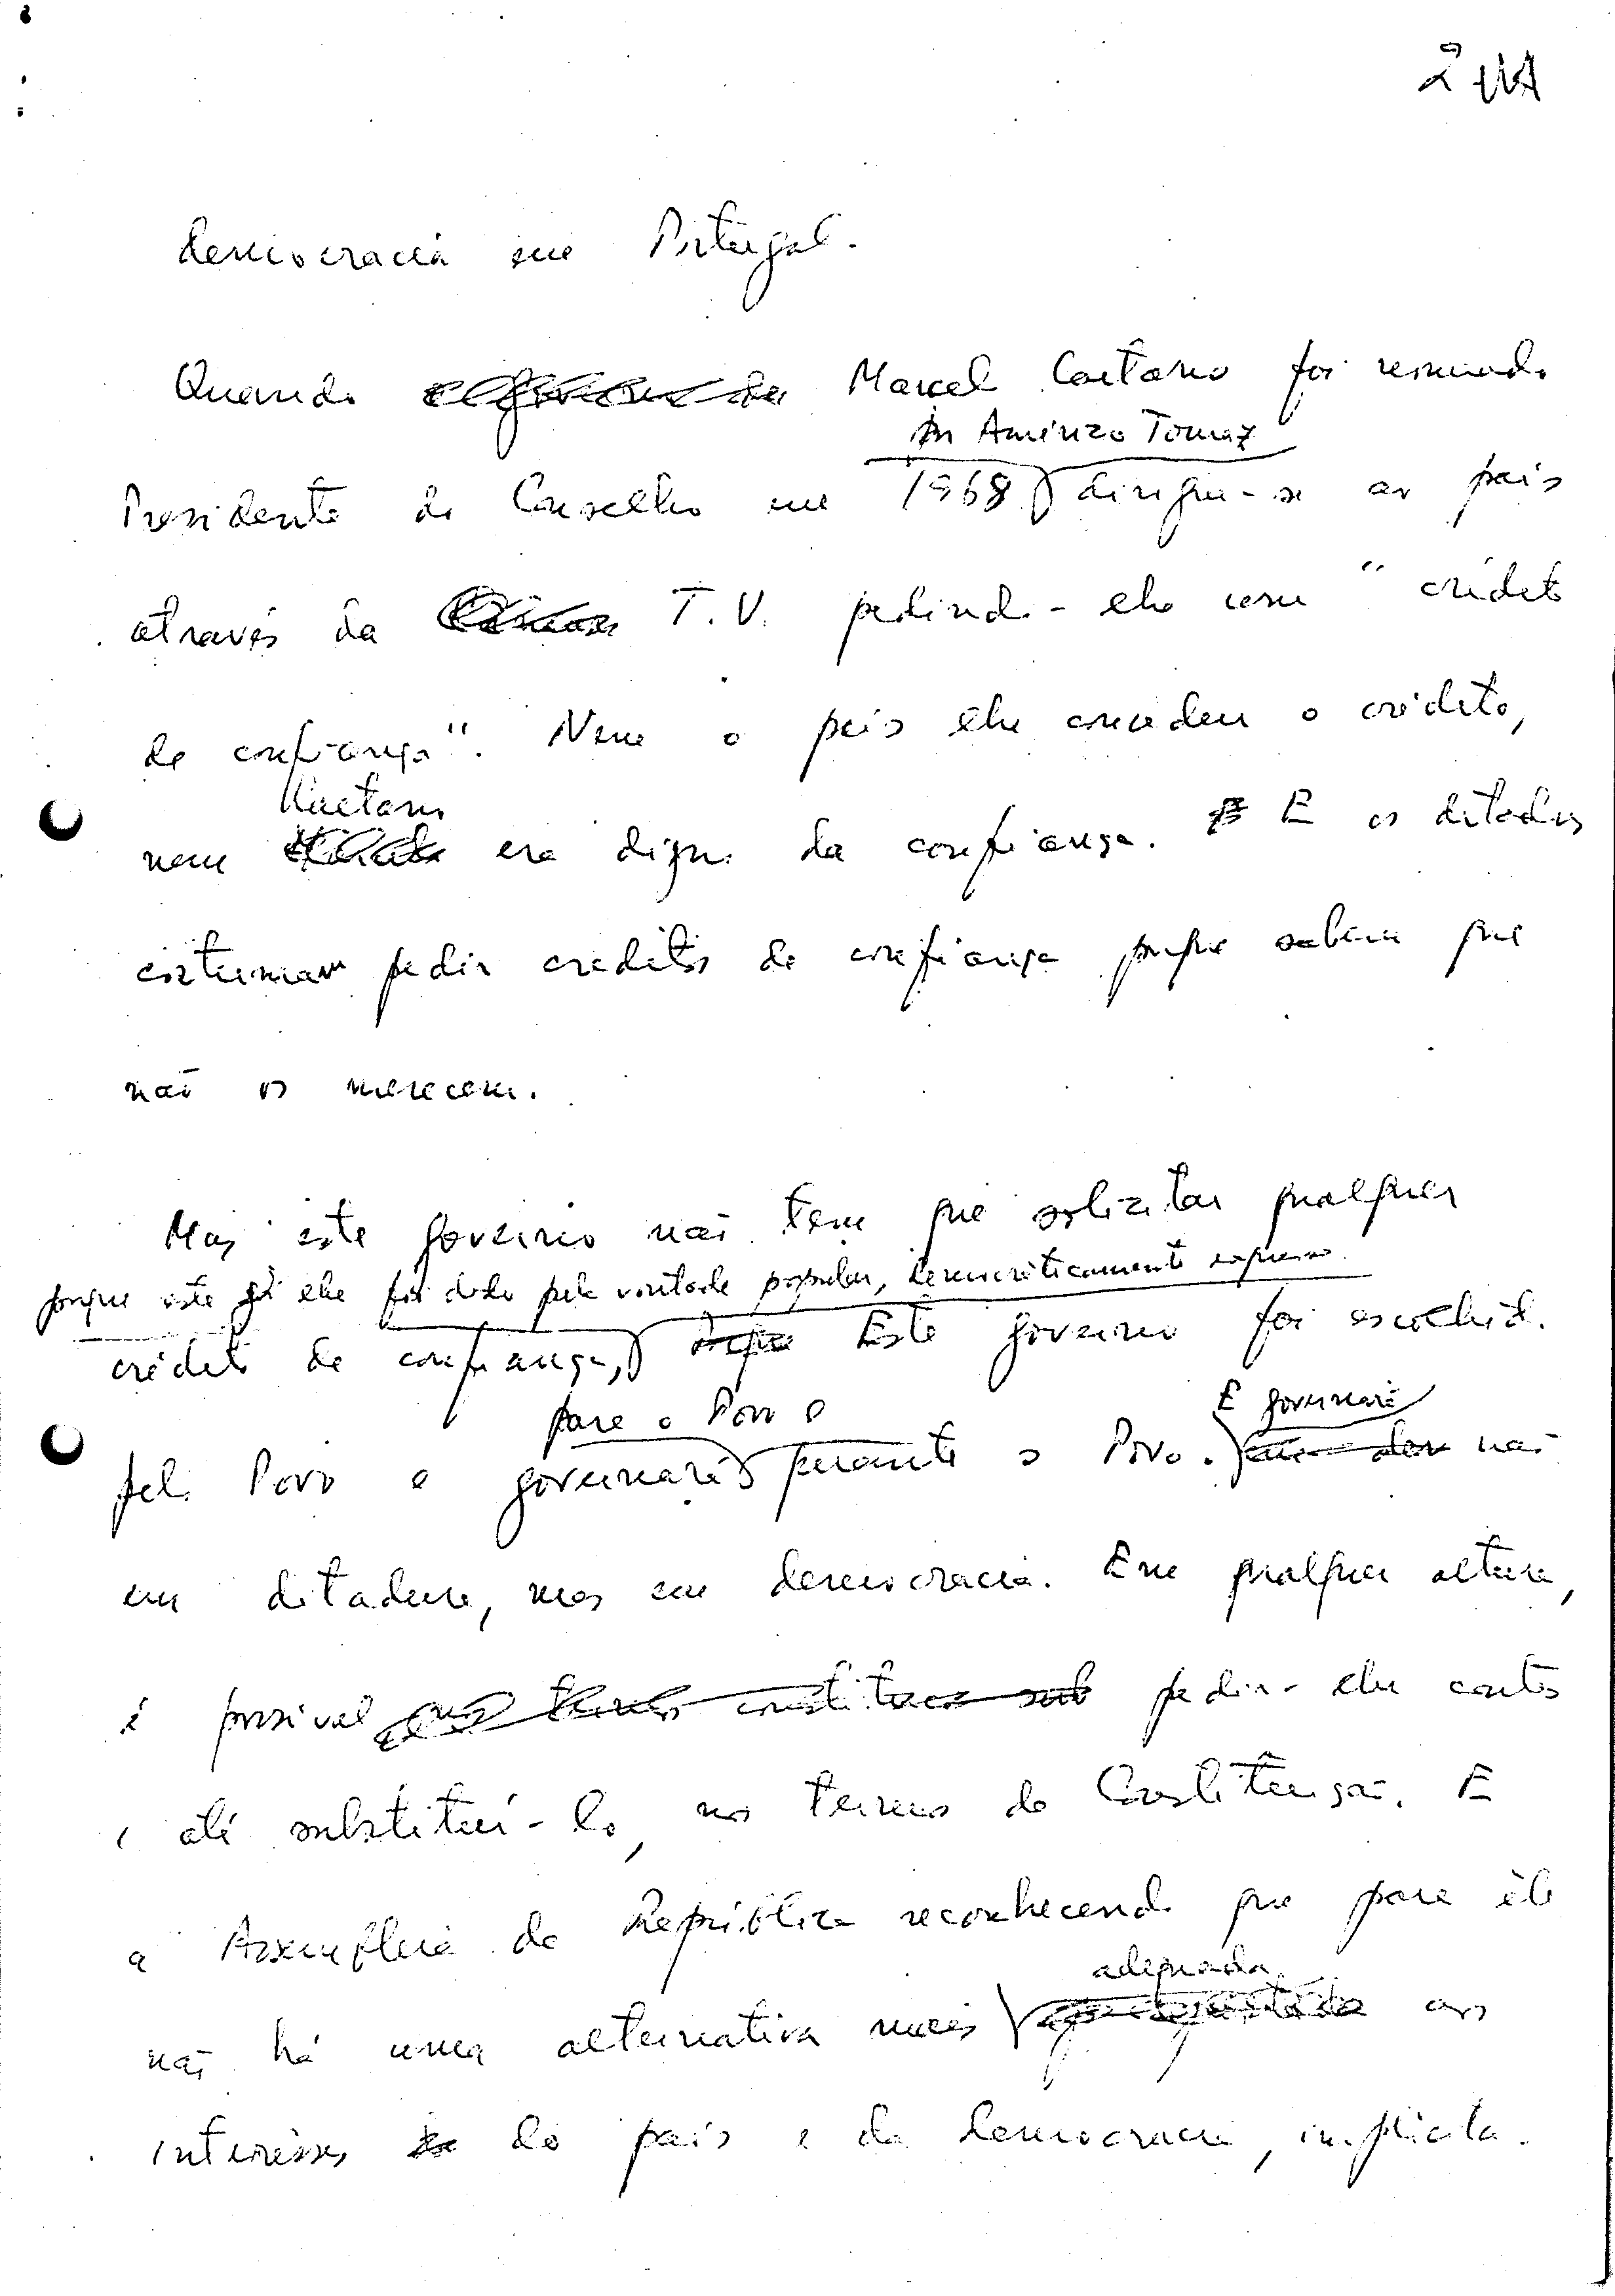 2
democracia em Portugal.
Quando Marcelo Caetano foi nomeado
por Américo Tomaz
Presidente do Conselho em 1968 dirigiu-se ao país
através da T.V. pedindo-lhe um "crédito
de confiança". Nem o país lhe concedeu o crédito,
Caetano
nem era digno da confiança. E os ditadores
costumam pedir créditos de confiança porque sabem que
não os merecem.
Mas este governo não tem que solicitar qualquer
porque este já lhe foi dado pela vontade popular, democraticamente expressa.
crédito de confiança, Este governo foi escolhido
para o Povo e
E governará
pelo Povo e governará perante o Povo. não
em ditadura, mas em democracia. Em qualquer altura,
é possível pedir-lhe contas
e até substituí-lo, nos termos da Constituição. E
a Assembleia da República reconhecendo que para ele
adequada
não há uma alternativa mais aos
interesses do país e da democracia,